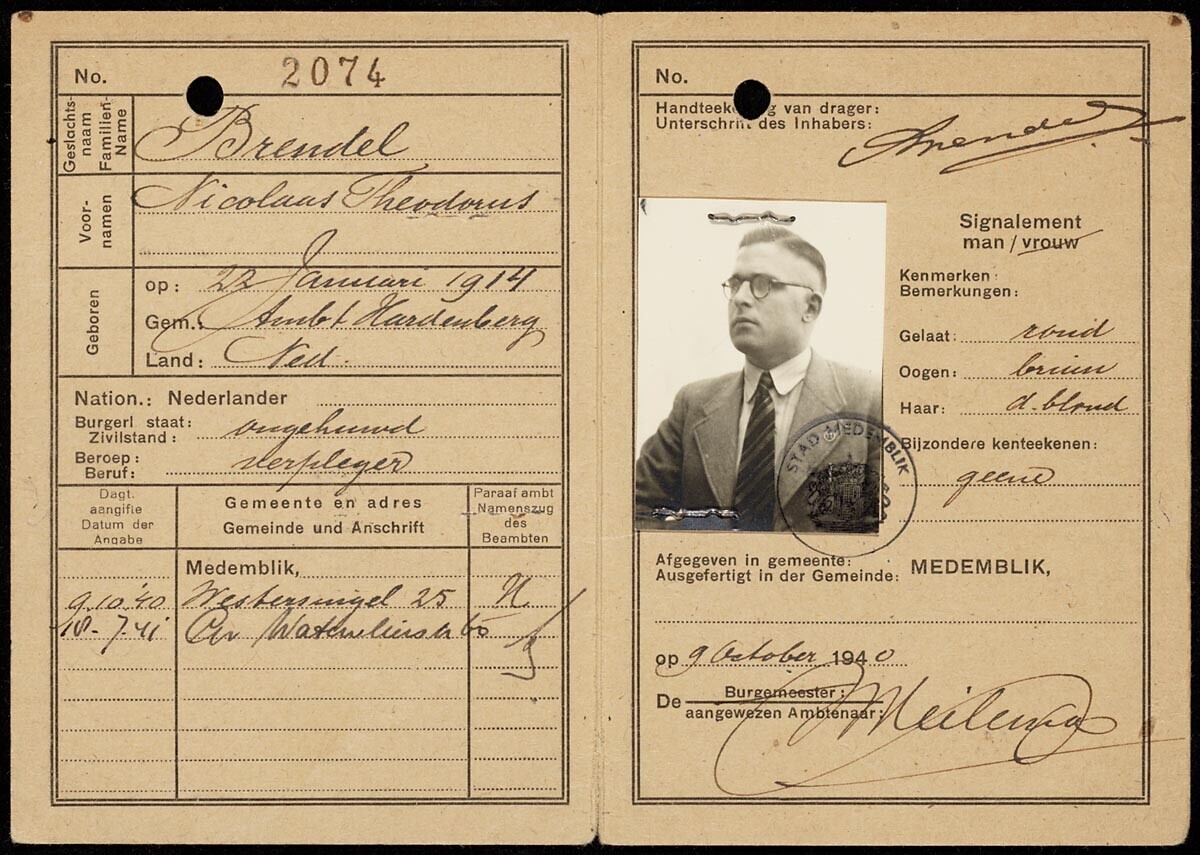 No. 2074
Geslachts-
naam
Familien-
Name
Brendel
Voor-
namen
Nicolaas Theodorus
Geboren
op: 22 Januari 1914
Gem.: Ambt Hardenberg
Land: Ned.
Nation.: Nederlander
Burgerl staat:
Zivilstand: ongehuwd
Beroep:
Beruf: verpleger
Dagt.
aangifte
Datum der
Angabe
Gemeente en adres
Gemeinde und Anschrift
Paraaf ambt
Namenszug
des
Beambten
Medemblik,
9.10.40 Westersingel 25
18-7.41
No.
Handteek g van drager:
Unterschrift des Inhabers:
Brendel
Signalement
man / vrouw
Kenmerken
Bemerkungen:
Gelaat: rond
Oogen: bruin
Haar: d. blond
Bijzondere kenteekenen:
geene
STAD MEDEMBLIK
Afgegeven in gemeente:
Ausgefertigt in der Gemeinde: MEDEMBLIK,
op 9 October 1940
De Burgemeester:
aangewezen Ambtenaar: